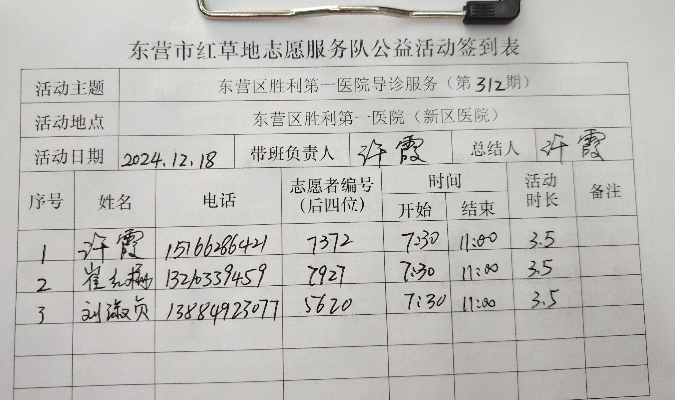 东营市红草地志愿服务队公益活动签到表
活动主题 东营区胜利第一医院导诊服务（第312期）
活动地点 东营区胜利第一医院（新区医院）
活动日期 2024.12.18 带班负责人 许霞 总结人 许霞
序号 姓名 电话 志愿者编号（后四位） 时间 开始 结束 活动时长 备注
1 许霞 15166286421 7372 7:30 11:00 3.5
2 崔 7927 7:30 11:00 3.5
3 刘淑贞 13884923077 5620 7:30 11:00 3.5